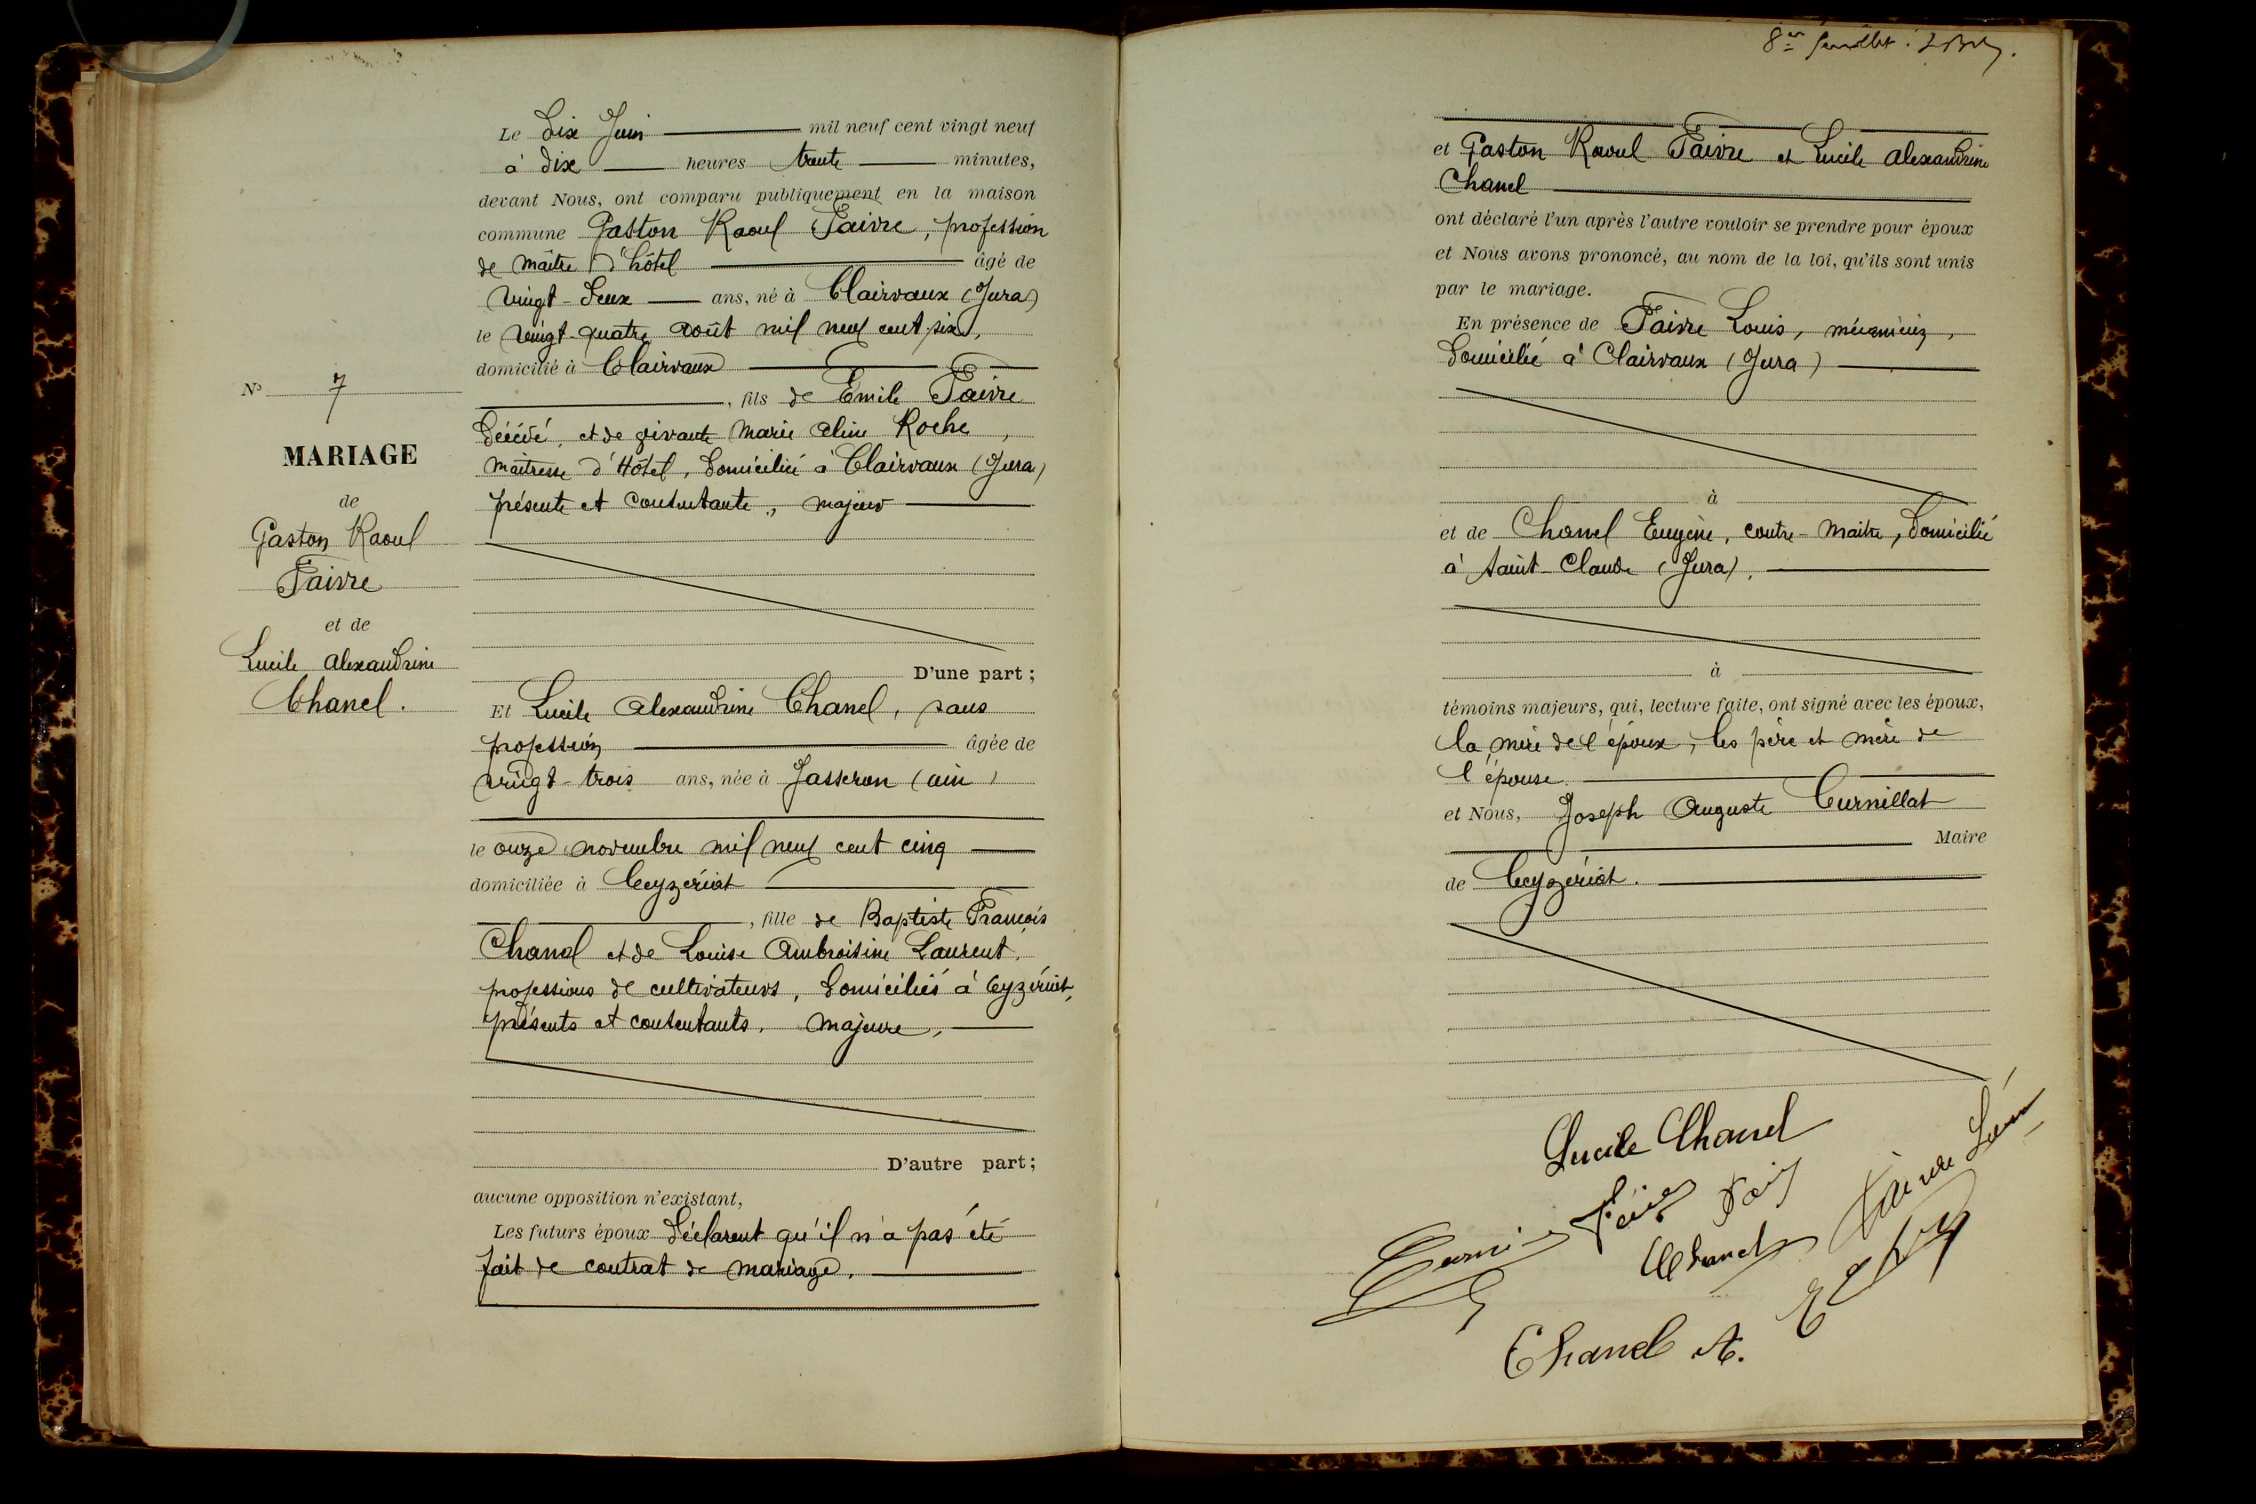 Le Dix Juin mil neuf cent vingt neuf
à dix heures trente minutes,
devant Nous, ont comparu publiquement en la maison
commune Gaston Raoul Faivre, profession
de maître d'hôtel âgé de
vingt-deux ans, né à Clairvaux (Jura)
le vingt-quatre août mil neuf cent six,
domicilié à Clairvaux
, fils de Emile Faivre
décédé, et de vivante Marie Aline Roche,
maîtresse d'Hôtel, domiciliée à Clairvaux (Jura)
présente et consentante, majeur
D'une part ;
Et Lucile Alexandrine Chanel, sans
profession âgée de
vingt-trois ans, née à Jasseron (Ain)
le onze novembre mil neuf cent cinq
domiciliée à Ceyzériat
, fille de Baptiste François
Chanel et de Louise Ambroisine Laurent,
professions de cultivateurs, domiciliés à Ceyzériat,
présents et consentants, majeure,
D'autre part ;
aucune opposition n'existant,
Les futurs époux déclarent qu'il n'a pas été
fait de contrat de mariage.
No 7
MARIAGE
de
Gaston Raoul
Faivre
et de
Lucile Alexandrine
Chanel.
8e feuillet.
et Gaston Raoul Faivre et Lucile Alexandrine
Chanel
ont déclaré l'un après l'autre vouloir se prendre pour époux
et Nous avons prononcé, au nom de la loi, qu'ils sont unis
par le mariage.
En présence de Faivre Louis, mécanicien,
domicilié à Clairvaux (Jura)
à
et de Chanel Eugène, contre-maître, domicilié
à Saint-Claude (Jura).
à
témoins majeurs, qui, lecture faite, ont signé avec les époux,
la mère de l'époux, les père et mère de
l'épouse
et Nous, Joseph Auguste Curnillat
Maire
de Ceyzériat.
Lucile Chanel
Chanel
Chanel A.